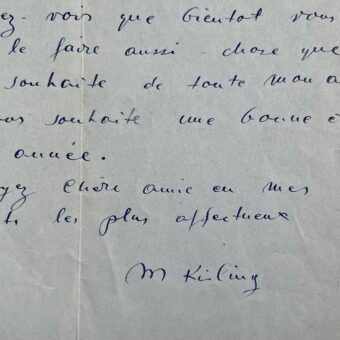 ez-vous que bientot vous
le faire aussi - chose que
souhaite de toute mon a
us souhaite une bonne e
année.
yez Chère amie en mes
ts les plus affectueux
M Kisling